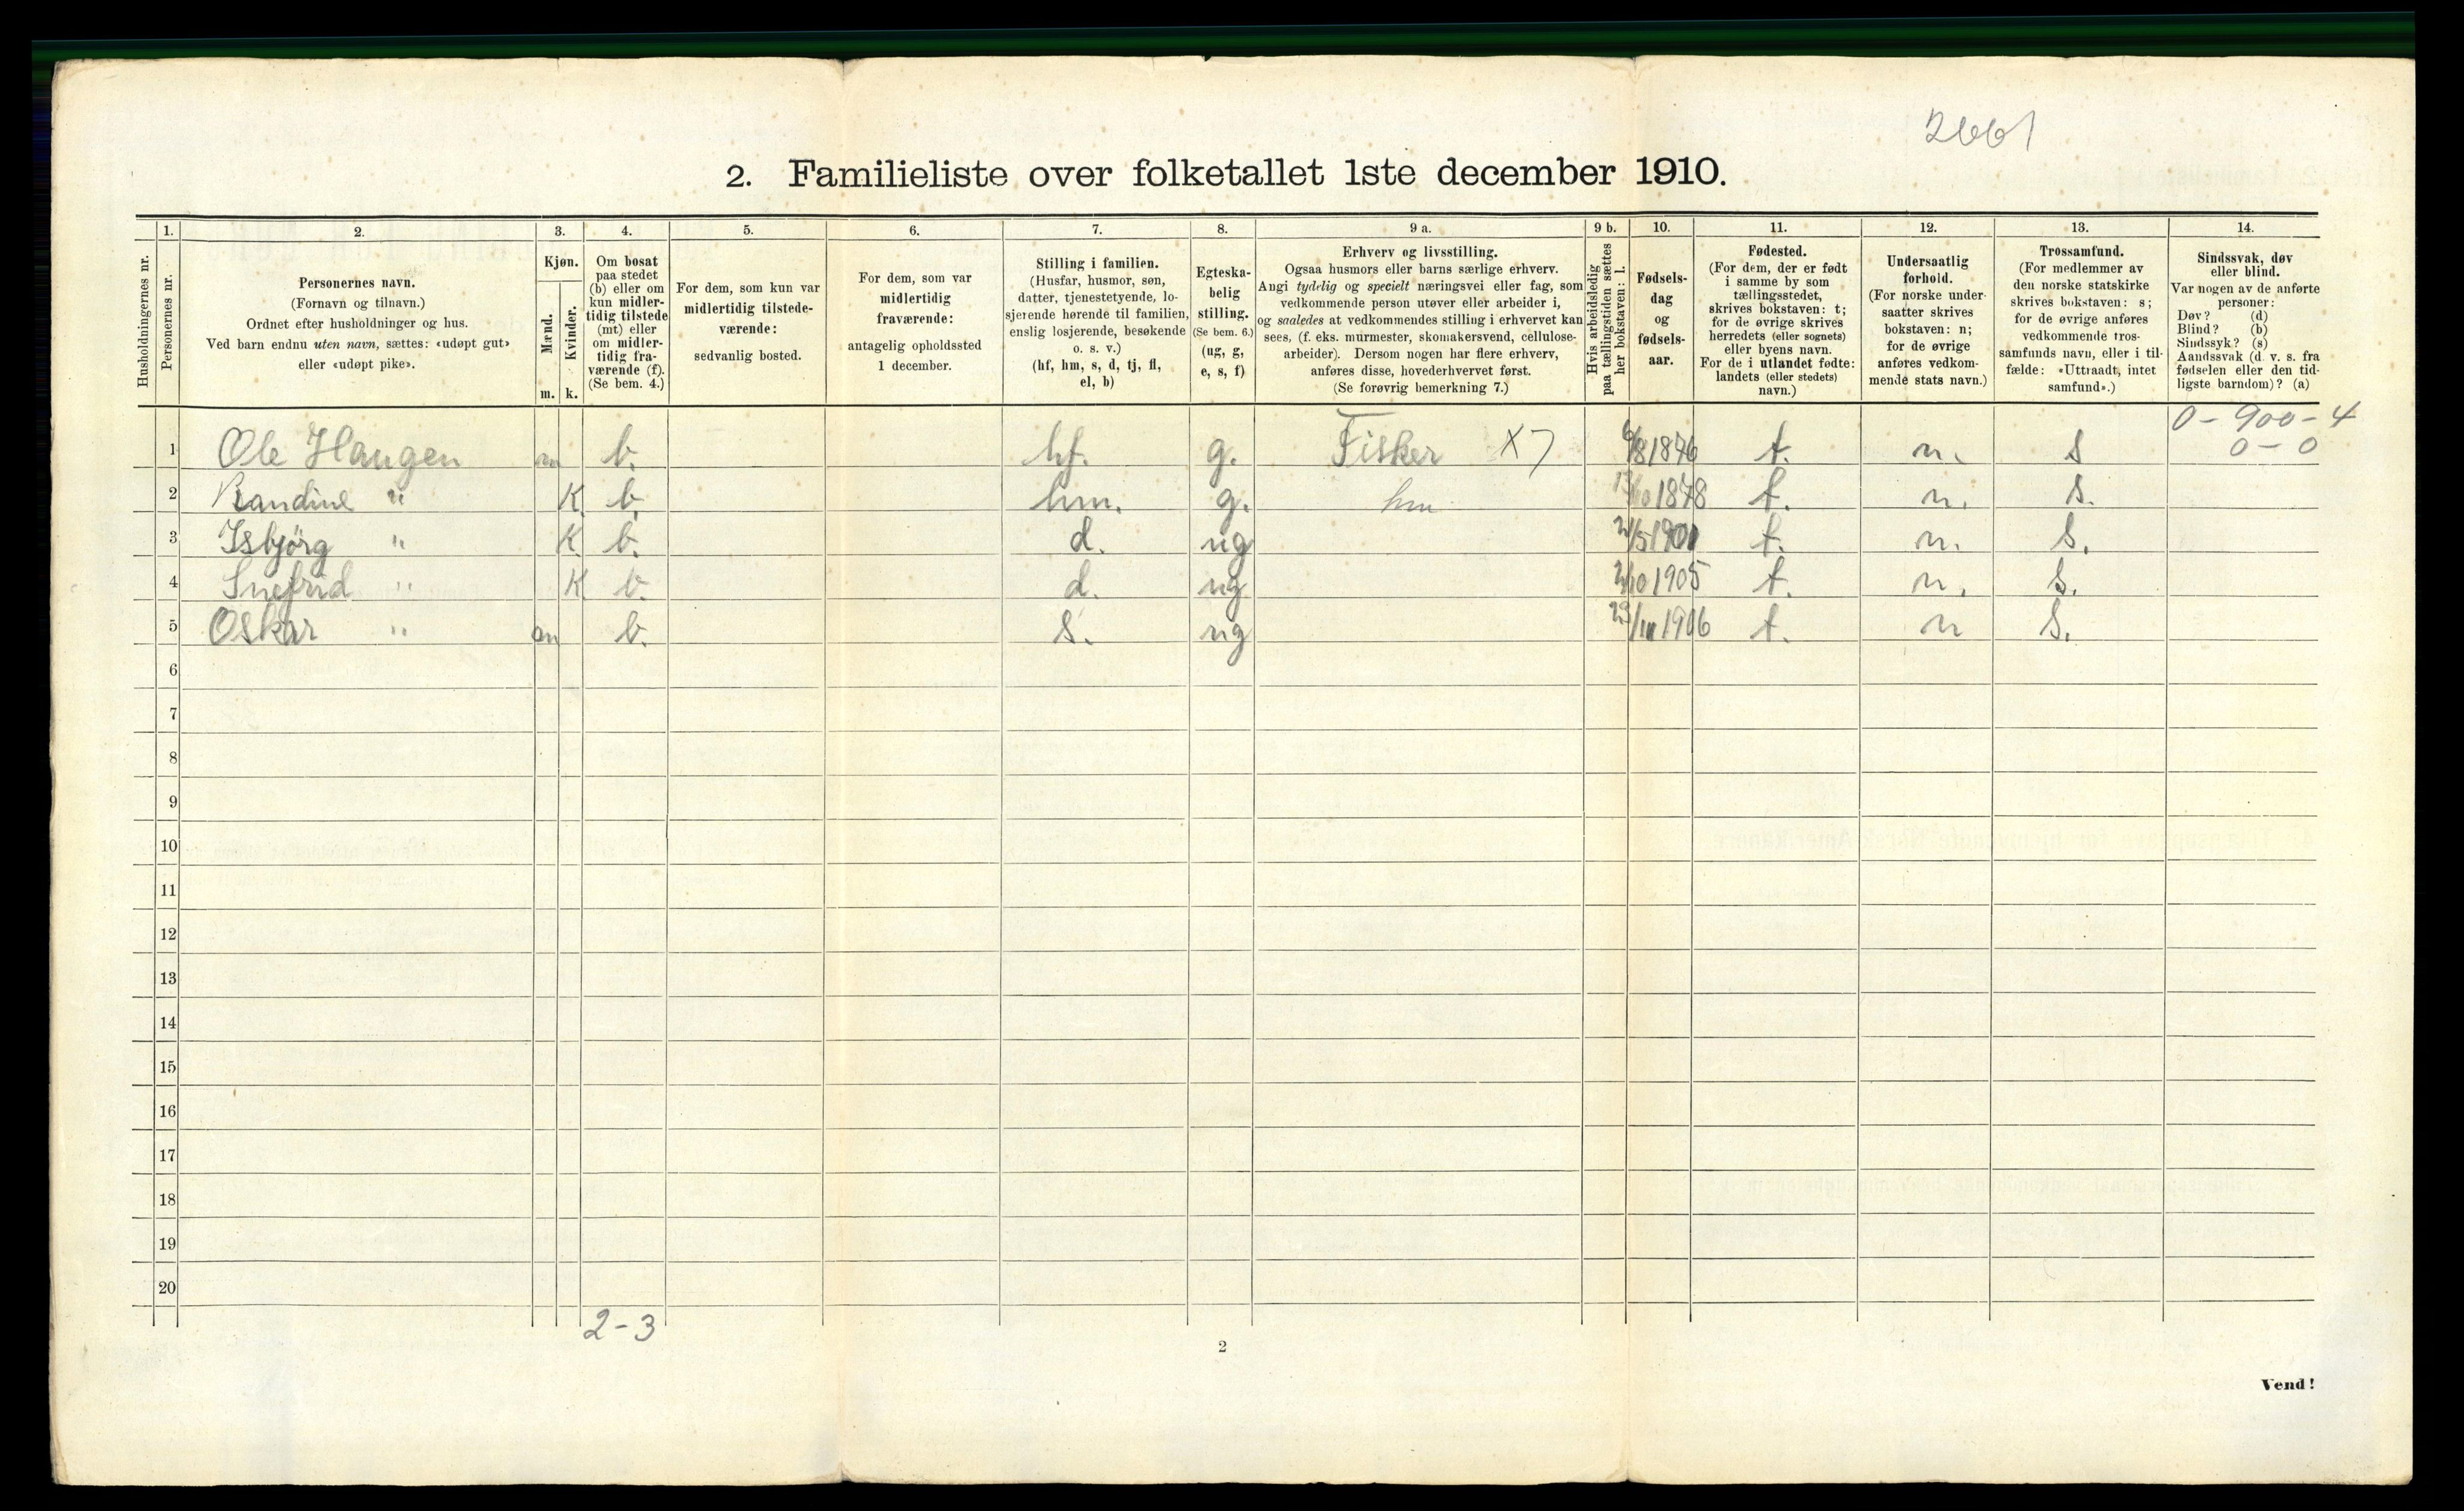 2661
2. Familieliste over folketallet 1ste december 1910.
Husholdningernes nr.
1.
Personernes nr.
2.
Personernes navn.
(Fornavn og tilnavn.)
Ordnet efter husholdninger og hus.
Ved barn endnu uten navn, sættes: «udøpt gut»
eller «udøpt pike».
3.
Kjøn.
Mænd.
Kvinder.
m. k.
4.
Om bosat
paa stedet
(b) eller om
kun midler-
tidig tilstede
(mt) eller
om midler-
tidig fra-
værende (f).
(Se bem. 4.)
5.
For dem, som kun var
midlertidig tilstede-
værende:
sedvanlig bosted.
6.
For dem, som var
midlertidig
fraværende:
antagelig opholdssted
1 december.
7.
Stilling i familien.
(Husfar, husmor, søn,
datter, tjenestetyende, lo-
sjerende hørende til familien,
enslig losjerende, besøkende
o. s. v.)
(hf, hm, s, d, tj, fl,
el, b)
8.
Egteska-
belig
stilling.
(Se bem. 6.)
(ug, g,
e, s, f)
9 a.
Erhverv og livsstilling.
Ogsaa husmors eller barns særlige erhverv.
Angi tydelig og specielt næringsvei eller fag, som
vedkommende person utøver eller arbeider i,
og saaledes at vedkommendes stilling i erhvervet kan
sees, (f. eks. murmester, skomakersvend, cellulose-
arbeider). Dersom nogen har flere erhverv,
anføres disse, hovederhvervet først.
(Se forøvrig bemerkning 7.)
9 b.
Hvis arbeidsledig
paa tællingstiden sættes
her bokstaven: l.
10.
Fødsels-
dag
og
fødsels-
aar.
11.
Fødested.
(For dem, der er født
i samme by som
tællingsstedet,
skrives bokstaven: t;
for de øvrige skrives
herredets (eller sognets)
eller byens navn.
For de i utlandet fødte:
landets (eller stedets)
navn.)
12.
Undersaatlig
forhold.
(For norske under-
saatter skrives
bokstaven: n;
for de øvrige
anføres vedkom-
mende stats navn.)
13.
Trossamfund.
(For medlemmer av
den norske statskirke
skrives bokstaven: s;
for de øvrige anføres
vedkommende tros-
samfunds navn, eller i til-
fælde: «Uttraadt, intet
samfund».)
14.
Sindssvak, døv
eller blind.
Var nogen av de anførte
personer:
Døv? (d)
Blind? (b)
Sindssyk? (s)
Aandssvak (d. v. s. fra
fødselen eller den tid-
ligste barndom)? (a)
0 - 900 - 4
0 - 0
1 Ole Haugen m b. hf. g. Fisker X7 6/8 1876 t. n. s
2 Randine " K b. hm. g. hm 1878 t. n. s.
3 Isbjörg " K b. d. ug t. n. s.
4 Snefrid " K b. d. ug 1905 t. n. s.
5 Oskar " m b. s. ug 1906 t. n s.
6
7
8
9
10
11
12
13
14
15
16
17
18
19
20
2-3
2
Vend!